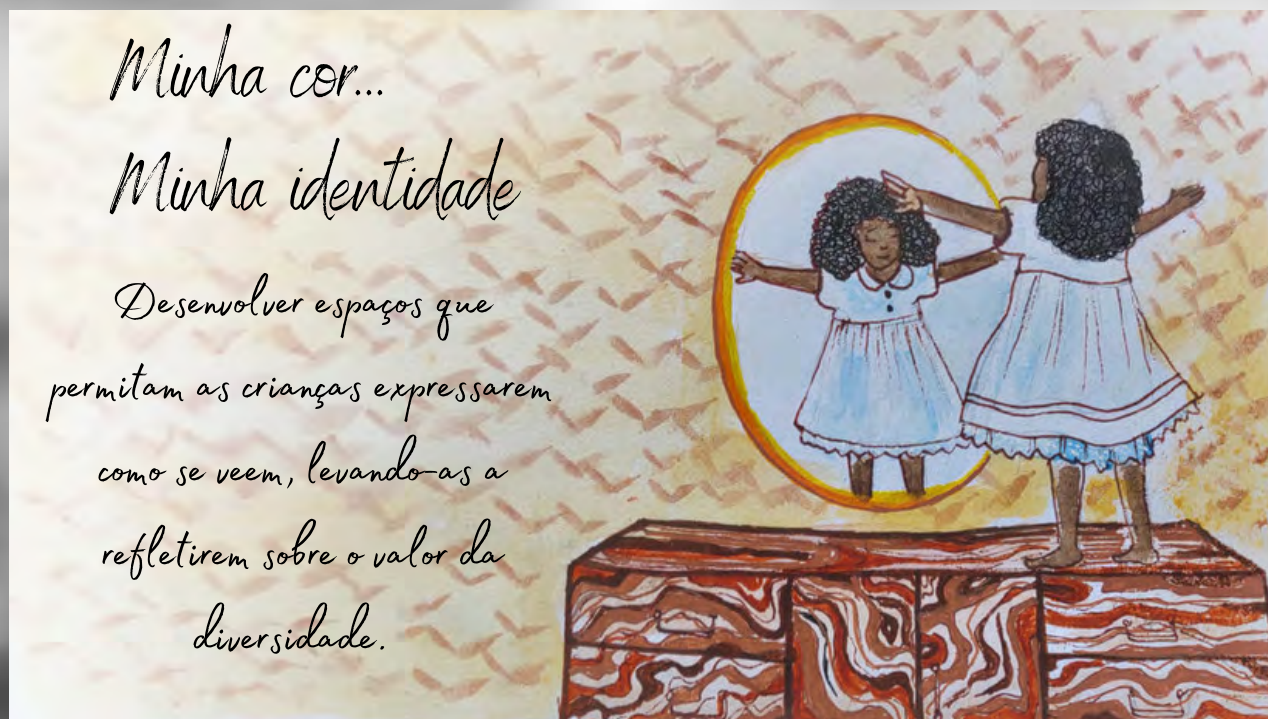 Minha cor...
Minha identidade
Desenvolver espaços que
permitam as crianças expressarem
como se veem, levando-as a
refletirem sobre o valor da
diversidade.